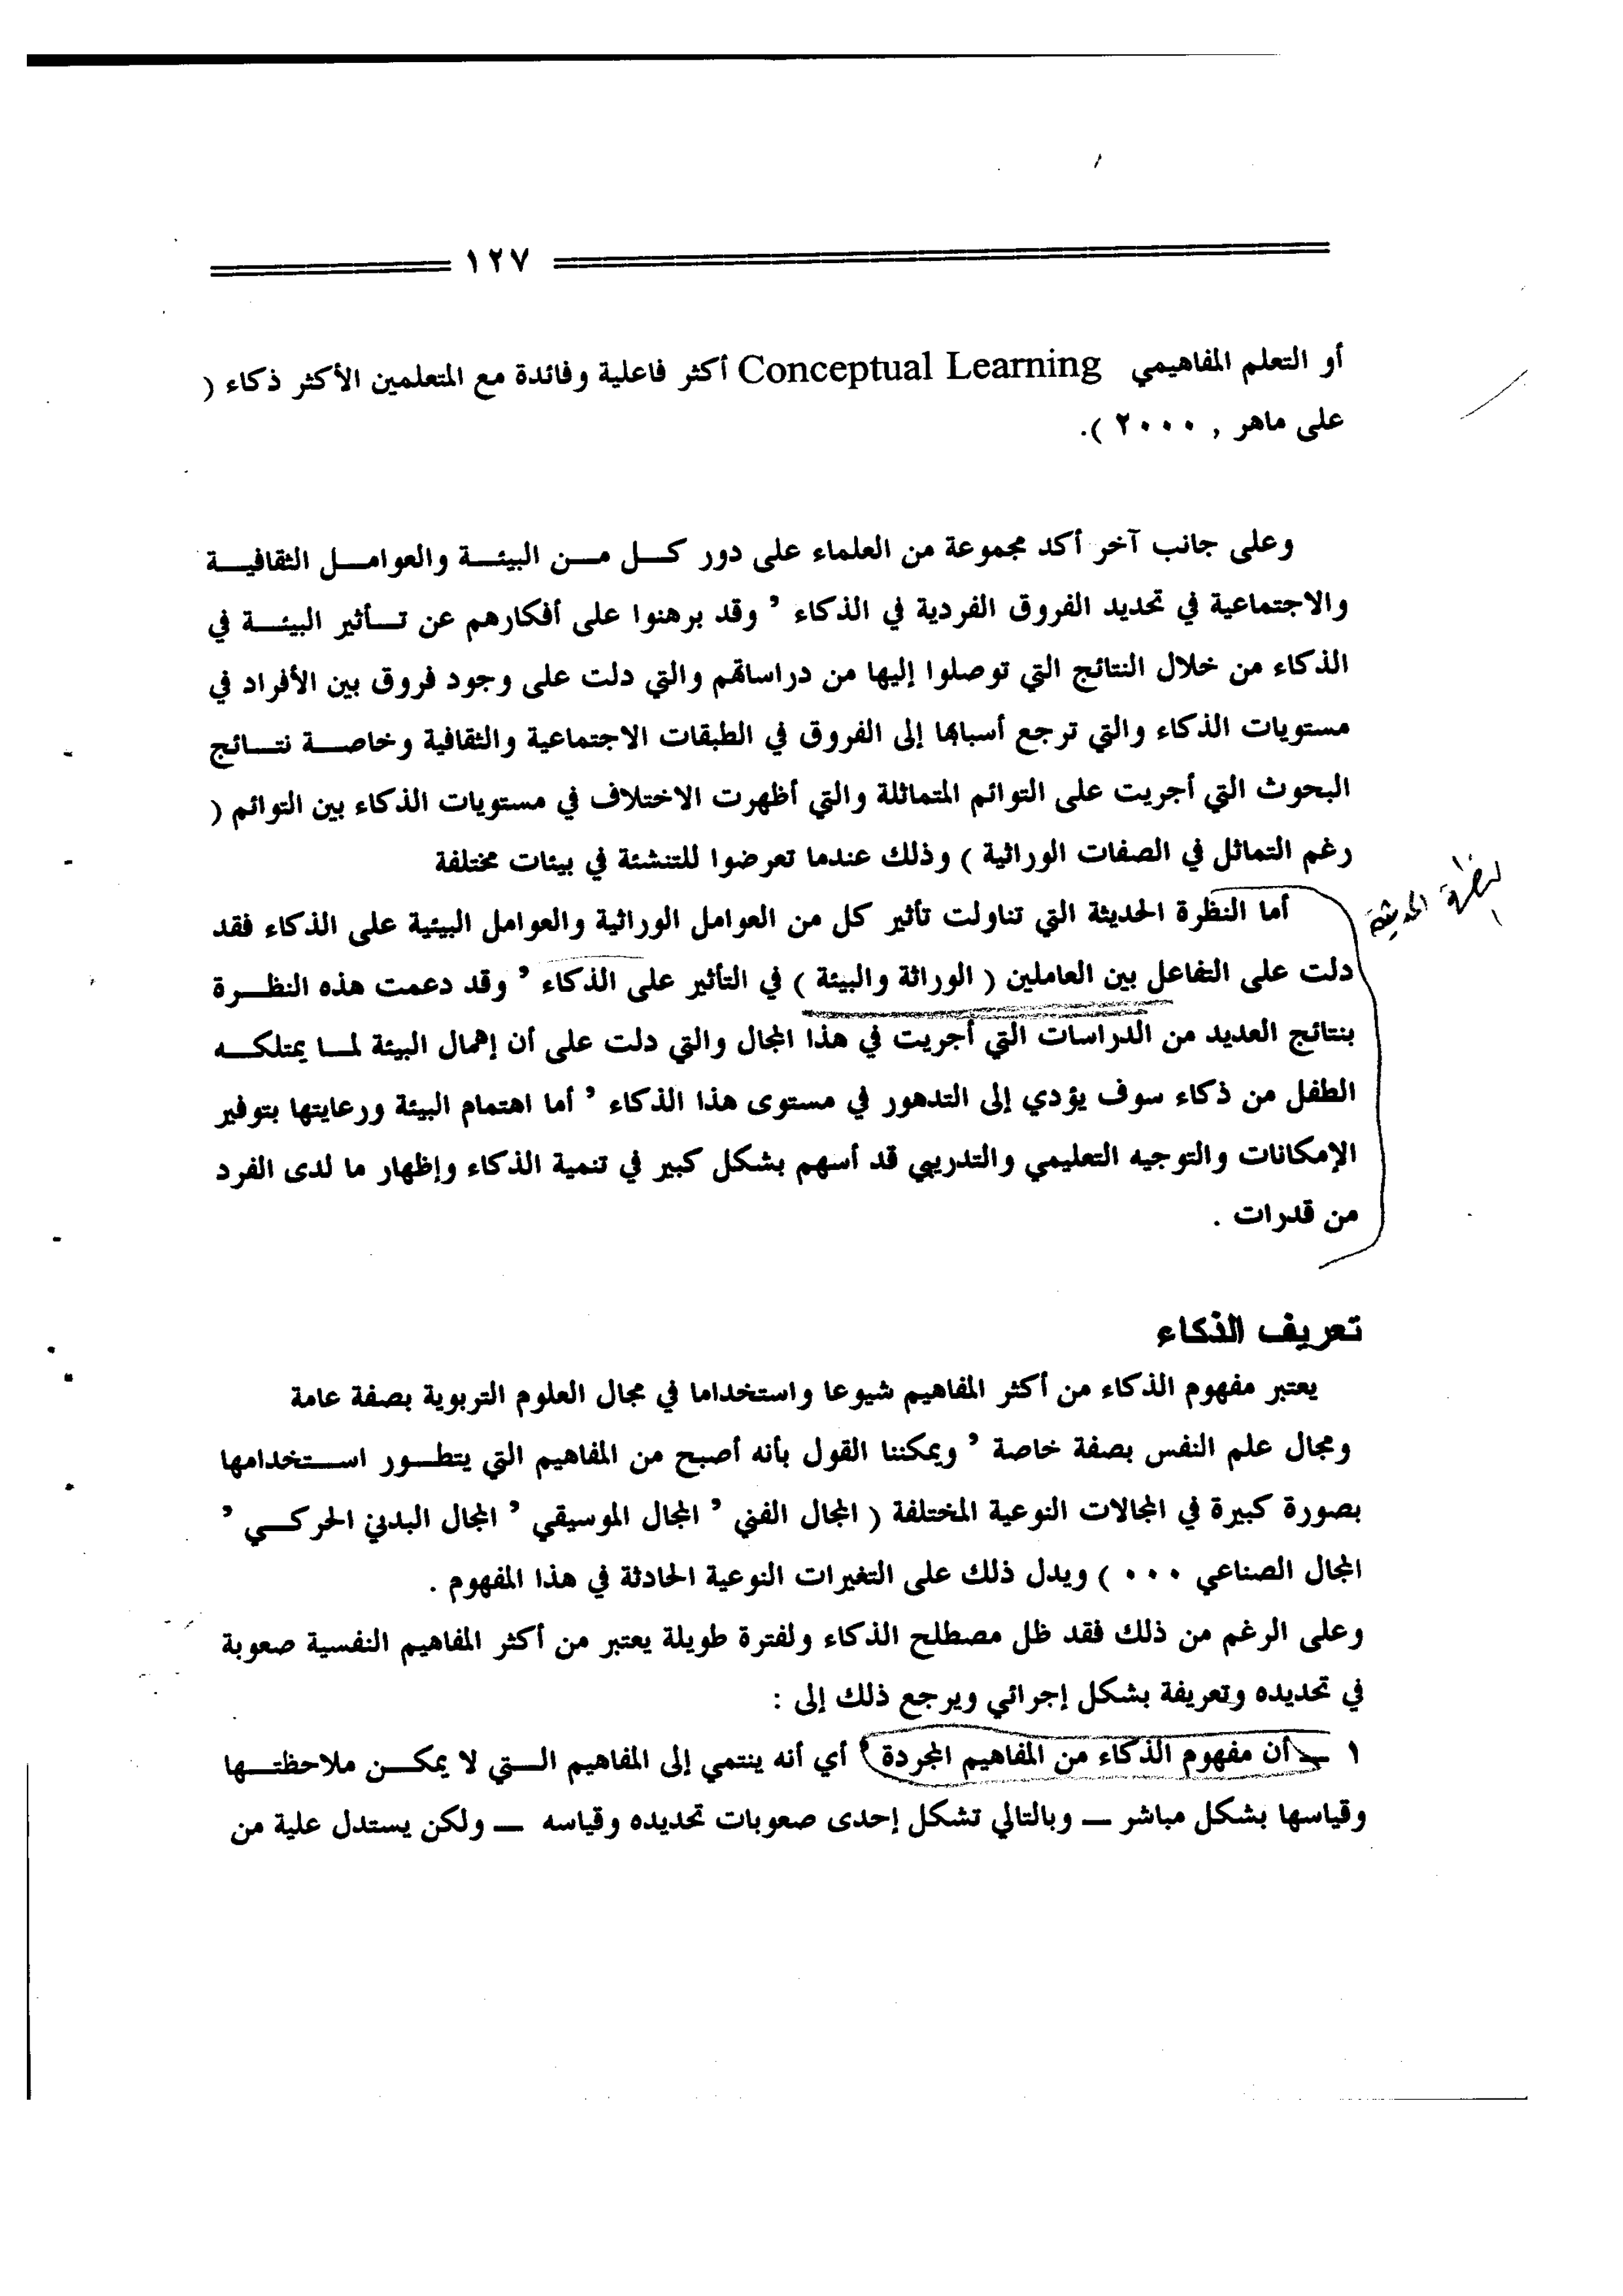 ١٢٧
أو التعلم المفاهيمي Conceptual Learning أكثر فاعلية وفائدة مع المتعلمين الأكثر ذكاء (
على ماهر , ٢٠٠٠ ).
وعلى جانب آخر أكد مجموعة من العلماء على دور كل من البيئة والعوامل الثقافية
والاجتماعية في تحديد الفروق الفردية في الذكاء ’ وقد برهنوا على أفكارهم عن تأثير البيئة في
الذكاء من خلال النتائج التي توصلوا إليها من دراساتهم والتي دلت على وجود فروق بين الأفراد في
مستويات الذكاء والتي ترجع أسبابها إلى الفروق في الطبقات الاجتماعية والثقافية وخاصة نتائج
البحوث التي أجريت على التوائم المتماثلة والتي أظهرت الاختلاف في مستويات الذكاء بين التوائم (
رغم التماثل في الصفات الوراثية ) وذلك عندما تعرضوا للتنشئة في بيئات مختلفة
النظرة الحديثة
أما النظرة الحديثة التي تناولت تأثير كل من العوامل الوراثية والعوامل البيئية على الذكاء فقد
دلت على التفاعل بين العاملين ( الوراثة والبيئة ) في التأثير على الذكاء ’ وقد دعمت هذه النظرة
بنتائج العديد من الدراسات التي أجريت في هذا المجال والتي دلت على أن إهمال البيئة لما يمتلكه
الطفل من ذكاء سوف يؤدي إلى التدهور في مستوى هذا الذكاء ’ أما اهتمام البيئة ورعايتها بتوفير
الإمكانات والتوجيه التعليمي والتدريبي قد أسهم بشكل كبير في تنمية الذكاء وإظهار ما لدى الفرد
من قدرات .
تعريف الذكاء
يعتبر مفهوم الذكاء من أكثر المفاهيم شيوعا واستخداما في مجال العلوم التربوية بصفة عامة
ومجال علم النفس بصفة خاصة ’ ويمكننا القول بأنه أصبح من المفاهيم التي يتطور استخدامها
بصورة كبيرة في المجالات النوعية المختلفة ( المجال الفني ’ المجال الموسيقي ’ المجال البدني الحركي ’
المجال الصناعي ٠٠٠ ) ويدل ذلك على التغيرات النوعية الحادثة في هذا المفهوم .
وعلى الرغم من ذلك فقد ظل مصطلح الذكاء ولفترة طويلة يعتبر من أكثر المفاهيم النفسية صعوبة
في تحديده وتعريفة بشكل إجرائي ويرجع ذلك إلى :
١ – أن مفهوم الذكاء من المفاهيم المجردة ’ أي أنه ينتمي إلى المفاهيم التي لا يمكن ملاحظتها
وقياسها بشكل مباشر – وبالتالي تشكل إحدى صعوبات تحديده وقياسه – ولكن يستدل علية من